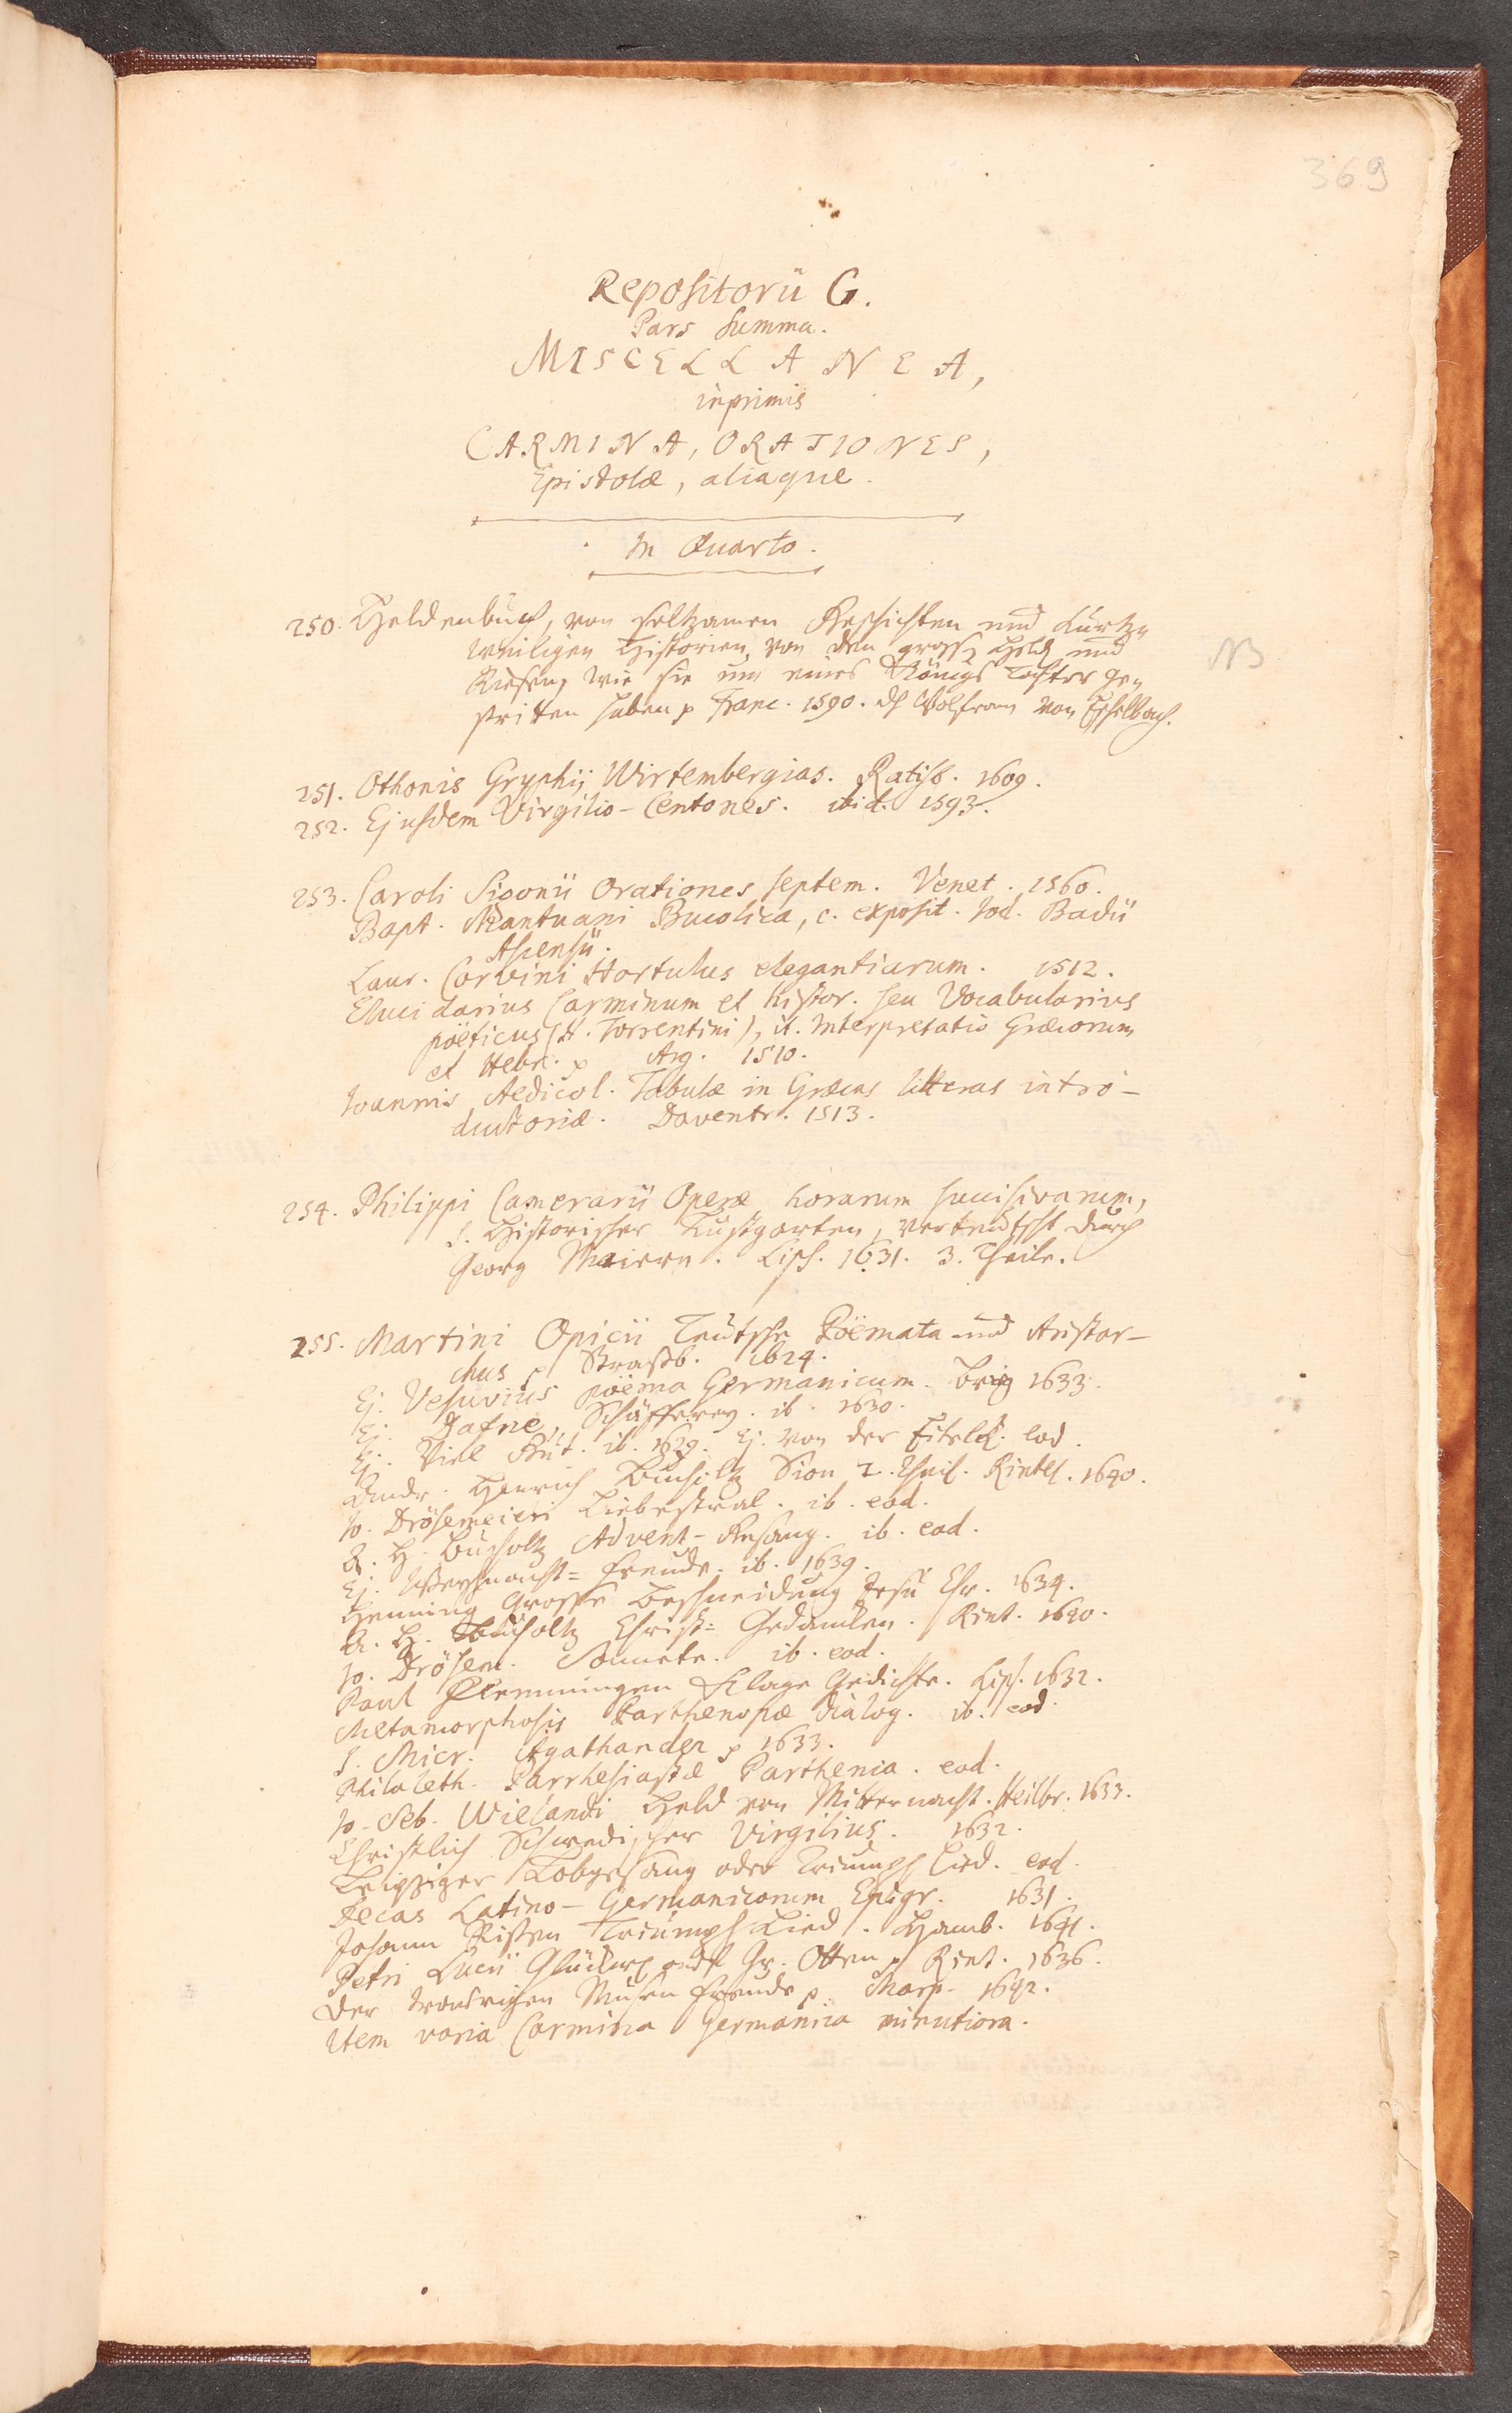 369
Repositorii G.
Pars summa.
MISCELLANEA,
inprimis
CARMINA, ORATIONES,
Epistolæ, aliaque.
In Quarto.
250. Heldenbuch, von seltzamen Geschichten und kurtz-
weiligen Historien, von den gross. Held. und
Riesen, wie sie um eines Königs Tochter ge-
stritten haben p Franc. 1590. dh Wolfram von Eschelbach.
NB
251. Othonis Gryphij Wirtembergias. Ratisb. 1609.
252. Ejusdem Virgilio-Centones. ibid. 1593.
253. Caroli Sigonii Orationes septem. Venet. 1560.
Bapt. Mantuani Bucolica, c. exposit. Jod. Badii
Ascensii.
Laur. Corvini Hortulus elegantiarum. 1512.
Elucidarius Carminum et histor. seu Vocabularius
poëticus (H. Torrentini), it. Interpretatio Græcorum
et Hebr. p Arg. 1510.
Joannis Aedicol. Tabulæ in Græcas litteras intro-
ductoriæ. Daventr. 1513.
254. Philippi Camerarii Operæ horarum succisivarum,
s. Historischer Lustgarten, verteutscht durch
Georg Maiern. Lips. 1631. 3. Theile.
255. Martini Opicii Teutsche Poëmata und Aristar-
chus p Strasb. 1624.
Ej. Vesuvius poëma Germanicum. Brig 1633.
Ej. Dafne, Schäfferey. ib. 1630.
Ej. Viel Gut. ib. 1629. Ej. von der Eitelk. eod.
Andr. Henrich Bucholtz Sion 2. Theil. Rintel. 1640.
Jo. Drösemeieri Liebestral. ib. eod.
A. H. Bucholtz Advent-Gesang. ib. eod.
Ej. Weyhnacht-freude. ib. 1639.
Henning Grosse Beschneidung Jesu Chr. 1634.
A. H. Bucholtz Christ-Gedancken. Rint. 1640.
Jo. Drösem. Sonnete. ib. eod.
Paul Flemmingen Klage Gedichte. Lips. 1632.
Metamorphosis Parthenopæ dialog. ib. eod.
J. Micr. Agathander p 1633.
Philaleth. Parrhesiastæ Parthenia. eod.
Jo. Seb. Wielandi Held von Mitternacht. Heilbr. 1633.
Christlich Schwedischer Virgilius. 1632.
Leipziger Lobgesang oder Triumph Lied. eod.
Decas Latino-Germanicorum Epigr. 1631.
Johann Risten Triumph Lied. Hamb. 1641.
Petri Lucii Glückw. Gr. Otten p Rint. 1636.
Der traurigen Musen freude p. Marp. 1642.
Item varia Carmina Germanica minutiora.